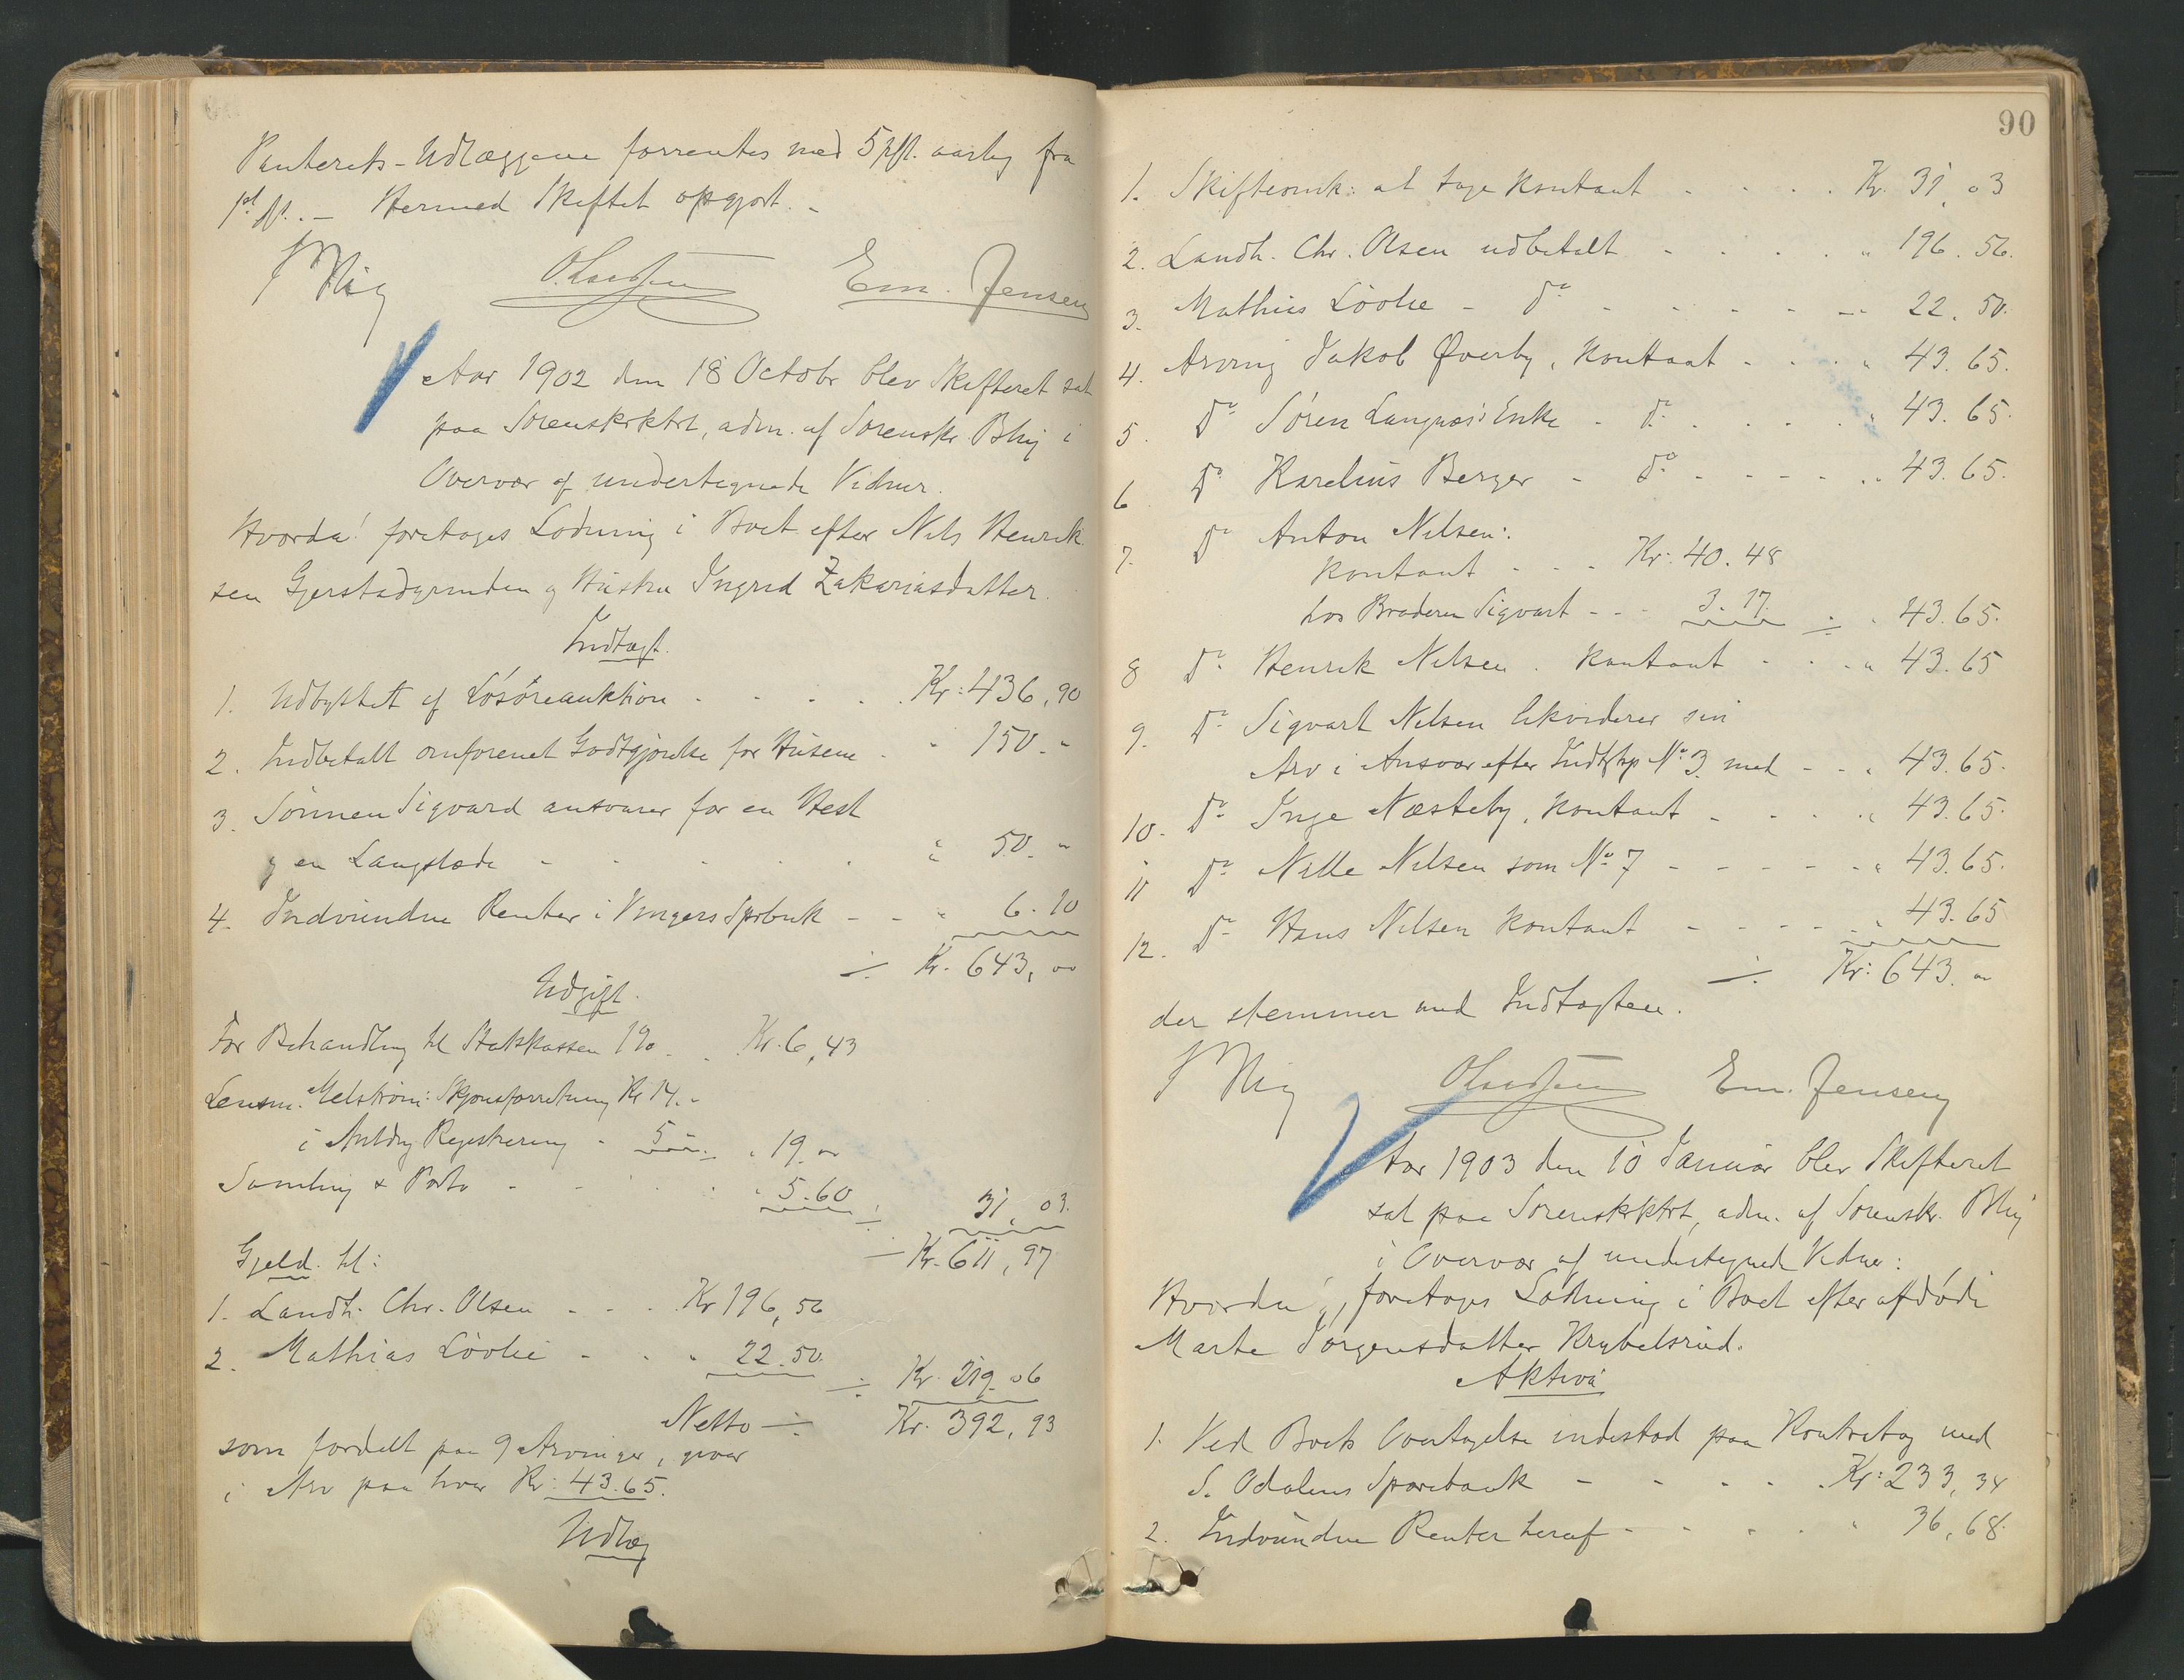 Panterets-Udlæggene forrentes med 5 pCt. aarlig fra
Hermed Skiftet opgjort.
Em. Jensen
Aar 1902 den 18 Octobr blev Skifteret sat
paa Sorenskrktrt, adm. af Sorenskr. Bhij i
Overvær af undertegnede Vidner.
Hvorda! foretages Lodning i Boet efter Nils Henrik
sen Gjerstadgrinden og Hustru Ingrid Zakariasdatter.
Indtægt.
1. Udbyttet af Løsøreauktion - - - Kr: 436,90
2. Indbetalt omforenet Godtgjørelse for Husene - " 150. "
3. Sønnen Sigvard ansvarer for en Hest
og en Langslæde - - - " 50. "
4. Indvundne Renter i Vingers Sprbnk - - " 6.10
÷ Kr. 643, 00
Udgift.
For Behandling til Statskassen 1% . . Kr. 6,43
Lensm. Melstrøm: Skjønsforretning Kr 14. -
i Anldng Registrering - 5 - . " 19. 00
Samling & Porto - - - " 5.60 ÷ 31,03.
÷ Kr. 611,97
Gjeld til:
1. Landh. Chr. Olsen - - . Kr 196,56
2. Mathias Løvlie - - . 22.50 ÷ Kr. 219.06
Netto ÷ Kr. 392,93
som fordelt paa 9 Arvinger, giver
i Arv paa hver Kr: 43.65.
Udlæg
90
1. Skifteomk: at tage kontant - - - . Kr. 31,03
2. Landh. Chr. Olsen udbetalt - - - . " 196.56.
3. Mathias Løvlie - Do - - - - 22.50.
4. Arving Jakob Øverby, kontant - - . " 43.65.
5. Do Søren Langnæs's Enke - do. . . . " 43.65.
6 Do Karelius Berger - do - - - - " 43.65.
7. Do Anton Nilsen:
kontant - - - Kr: 40.48
hos Broderen Sigvart - - - 3.17. ÷ " 43.65.
8 Do Henrik Nilsen. kontant - - - " 43.65
9. Do Sigvart Nilsen likviderer sin
Arv i Ansvar efter Indtktp No 3 med - - " 43.65.
10. Do Inge Næsteby, kontant - - - . " 43.65.
11 Do Nille Nilsen som No 7 - - - - - " 43.65.
12. Do Hans Nilsen kontant - - - - " 43.65
÷ Kr: 643. 00
der stemmer med Indtægten.
Em. Jensen
Aar 1903 den 10 Januar blev Skifteret
sat paa Sorenskrktrt, adm. af Sorenskr. Bhij
i Overvær af undertegnede Vidner:
Hvorda!, foretages Lodning i Boet efter afdøde
Marte Jørgensdatter Krybelsrud.
Aktiva
1. Ved Boets Overtagelse indestod paa Kontrabog med
S. Odalens Sparebank - - - . Kr: 233,34
2. Indvundne Renter heraf - - - . " 36,68.